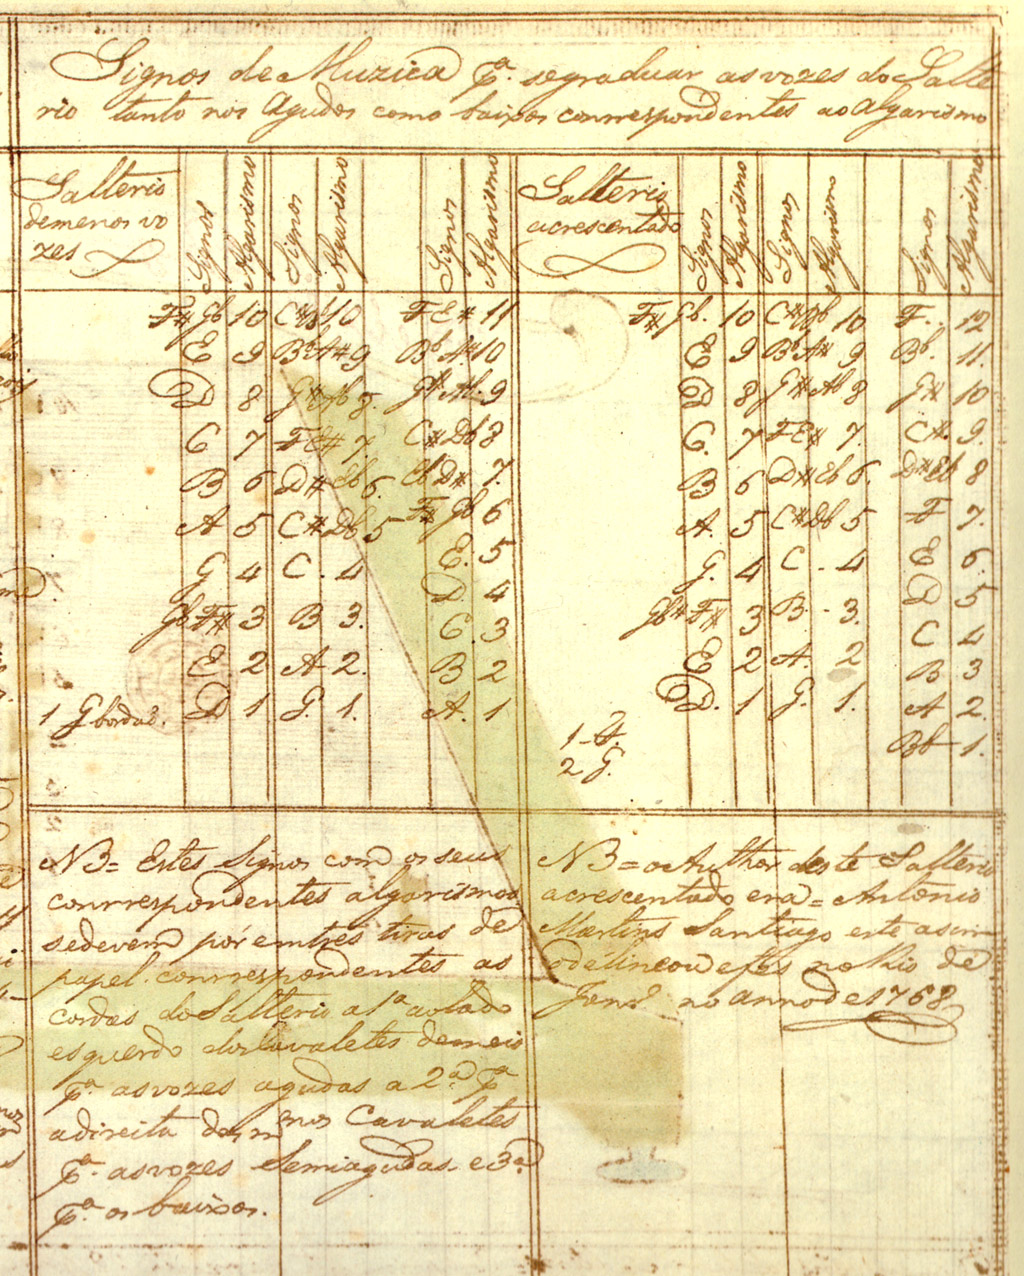 Signos de Muzica pª. se graduar as vozes do Salte
rio tanto nos Agudos como baixos conrrespondentes ao Algarismo
Salterio
de menos vo
zes
Signos Algarismo Signos Algarismo Signos Algarismo
F# Gb 10 C# Db 10 F E# 11
E 9 Bb A# 9 Bb A# 10
D 8 G# Ab 8. G# Ab. 9
C 7 F E# 7. C# Db 8
B 6 D# Eb 6. Eb D# 7.
A 5 C# Db 5 F# Gb 6
G 4 C. 4 E. 5
Gb F# 3 B 3. D 4
E 2 A 2. C. 3
D 1 G. 1. B 2
A. 1
1 G bordaõ.
Salterio
acrescentado
Signos Algarismo Signos Algarismo Signos Algarismo
F# Gb. 10 C# Db 10 F. 12
E 9 Bb A# 9 Bb. 11.
D 8 G# Ab 8 G# 10
C. 7 F E# 7. C#. 9.
B 6 D# Eb 6. D# Eb 8
A. 5 C# Db 5 F 7.
G. 4 C. 4 E 6.
Gb# F# 3 B. 3. D 5
E 2 A. 2 C 4
D. 1 G. 1. B 3
A 2.
Bb 1.
1-
2 G.
NB= Estes Signos com os seus
conrrespondentes algarismos
se devem pôr em três tiras de
papel. conrrespondentes as
cordas do Salterio a 1ª ao lado
esquerdo dos Cavaletes de meio
pª. as vozes agudas a 2ª pª
a direita dos nos Cavaletes
pª. as vozes Semiagudas. e 3ª
pª. os baixos.
NB= o Author deste Salterio
acrescentado era= Antonio
Martins Santiago este
delineou estes no Rio de
Janrº no anno de 1768